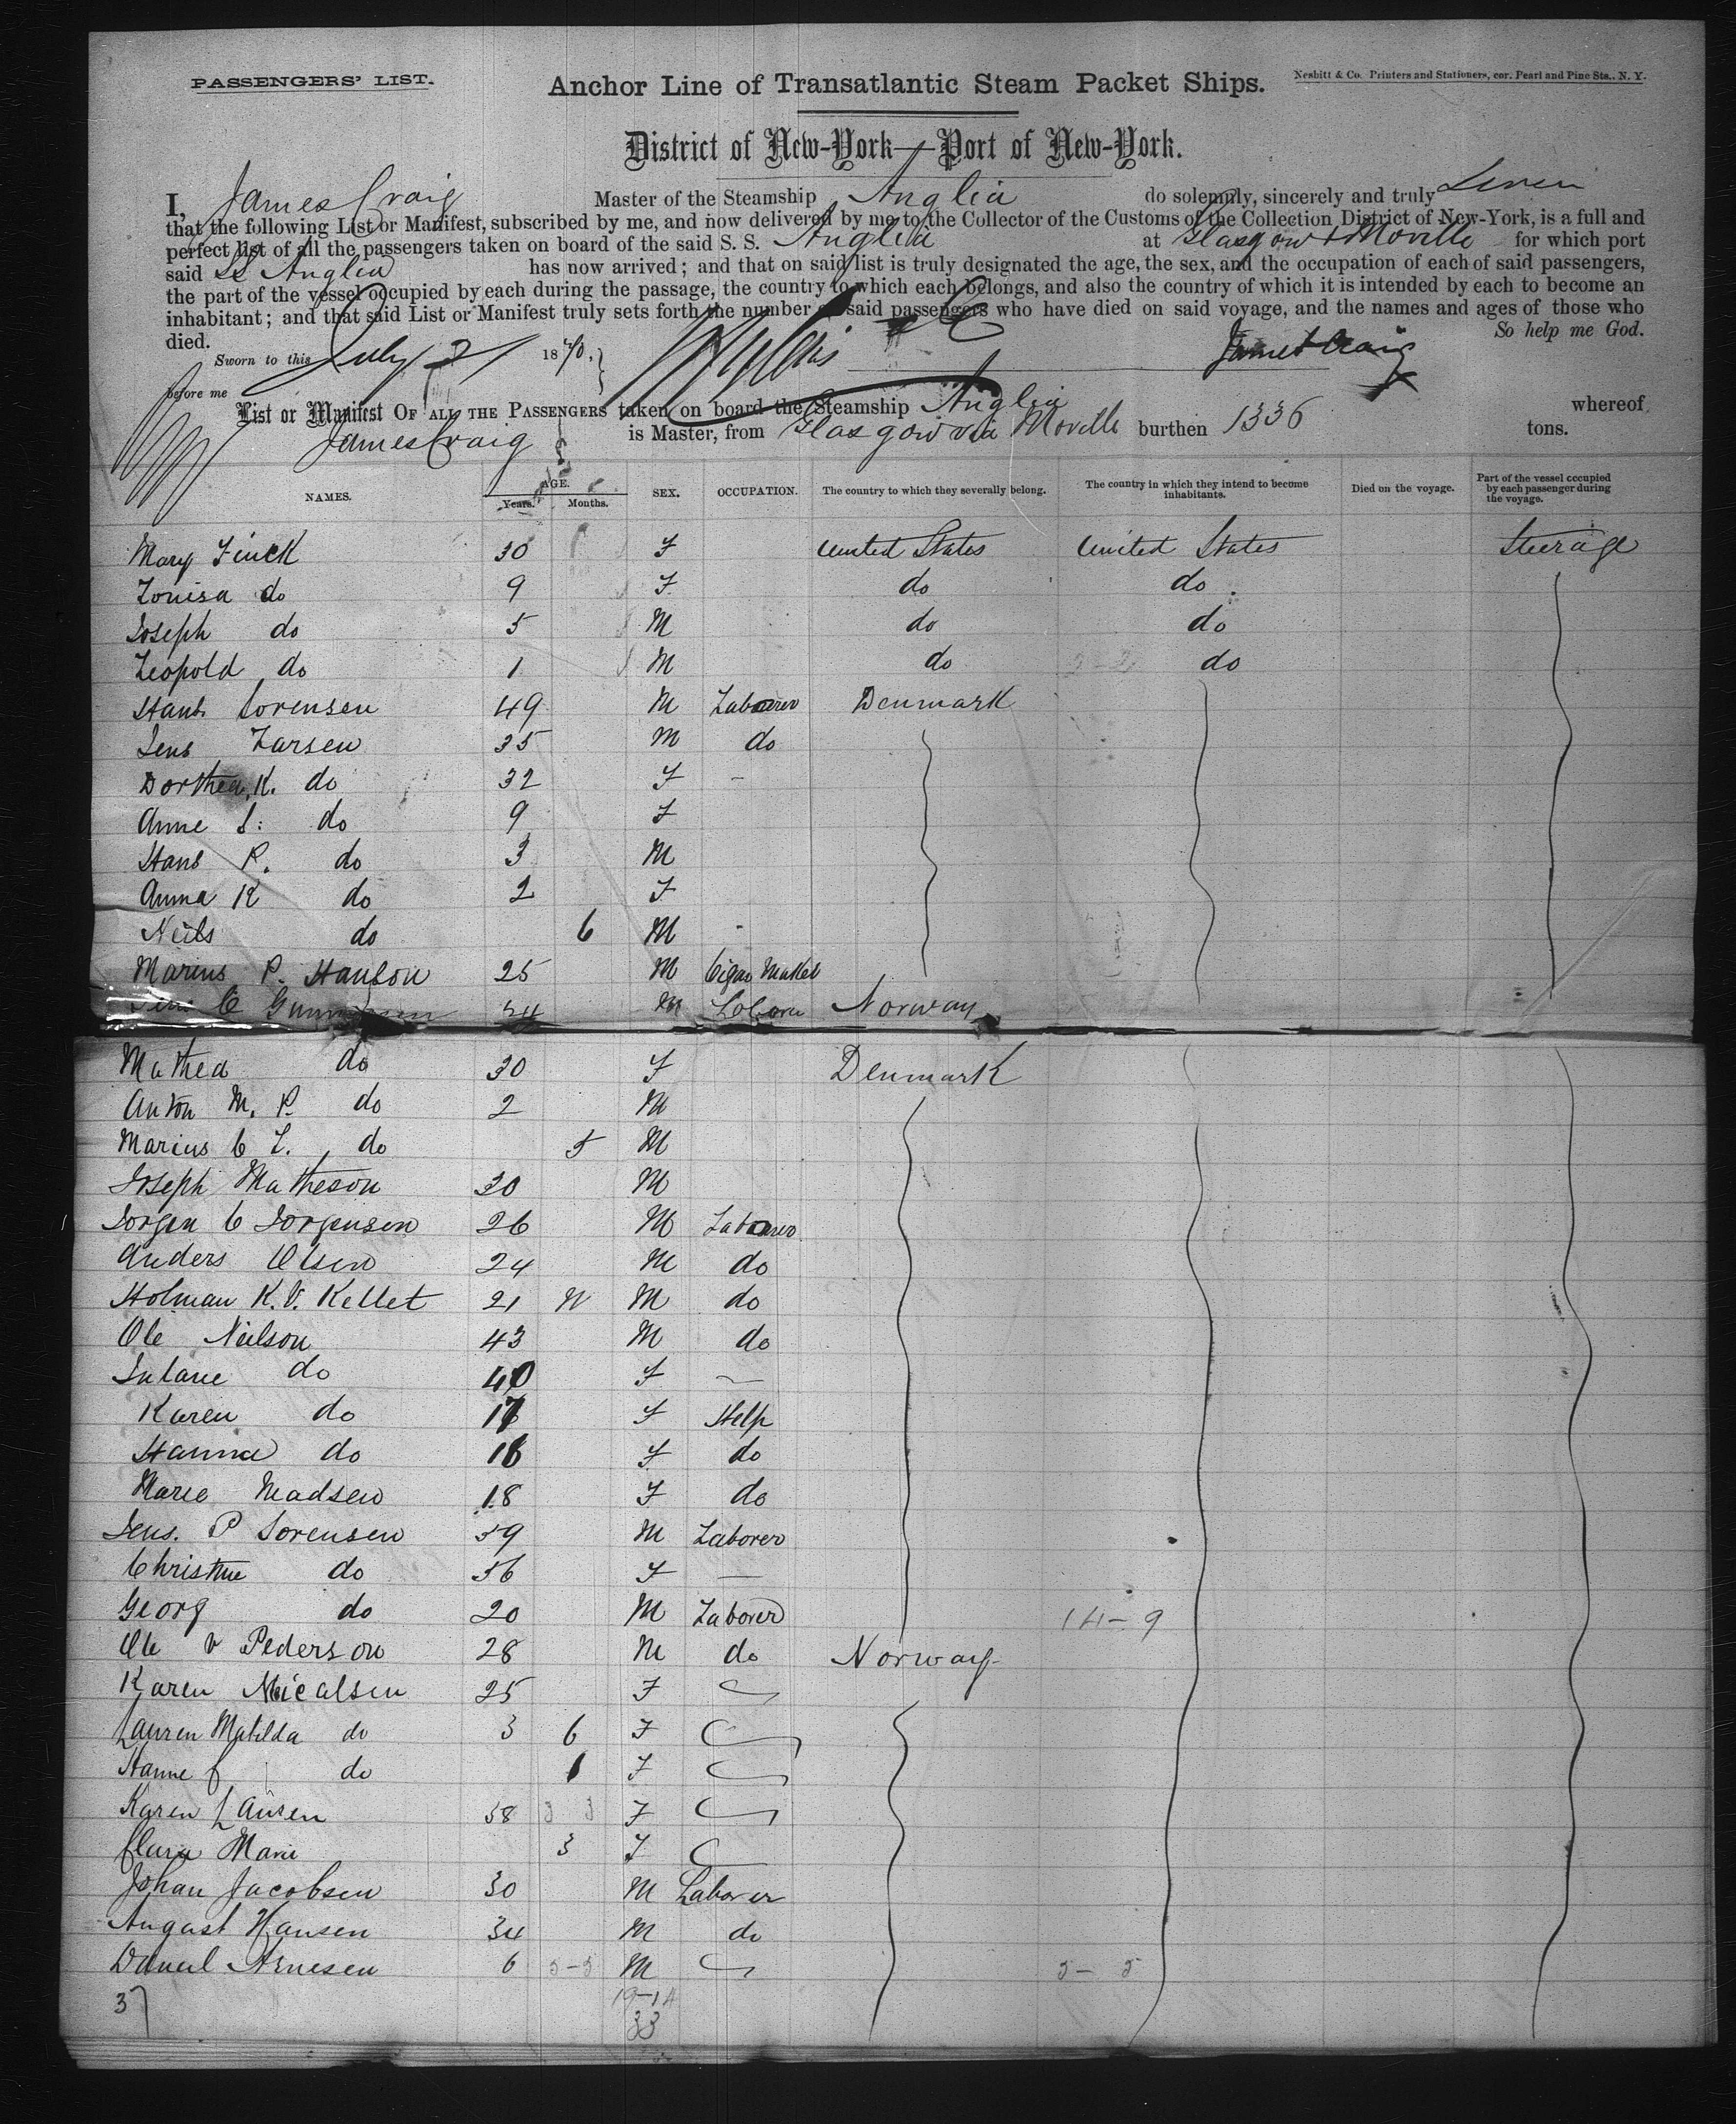 PASSENGERS' LIST.
Anchor Line of Transatlantic Steam Packet Ships.
Nesbitt & Co. Printers and Stationers, cor. Pearl and Pine Sts., N. Y.
District of New-York—Port of New-York.
I, James Craig Master of the Steamship Anglia do solemnly, sincerely and truly
that the following List or Manifest, subscribed by me, and now delivered by me to the Collector of the Customs of the Collection District of New-York, is a full and
perfect list of all the passengers taken on board of the said S. S. Anglia at Glasgow & Moville for which port
said SS Anglia has now arrived; and that on said list is truly designated the age, the sex, and the occupation of each of said passengers,
the part of the vessel occupied by each during the passage, the country to which each belongs, and also the country of which it is intended by each to become an
inhabitant; and that said List or Manifest truly sets forth the number of said passengers who have died on said voyage, and the names and ages of those who
died. So help me God.
Sworn to this July 21 1870. James Craig
before me
List or Manifest OF ALL THE PASSENGERS taken on board the Steamship Anglia whereof
James Craig is Master, from Glasgow via Moville burthen 1336 tons.
NAMES. AGE. Years. Months. SEX. OCCUPATION. The country to which they severally belong. The country in which they intend to become inhabitants. Died on the voyage. Part of the vessel occupied by each passenger during the voyage.
Mary Finck 30 F United States United States Steerage
Louisa do 9 F do do
Joseph do 5 M do do
Leopold do 1 M do do
Hans Sorensen 49 M Laborer Denmark
Jens Larsen 35 M do
Dorthea K. do 32 F -
Anne S: do 9 F
Hans P. do 3 M
Anna K do 2 F
Neils do 6 M
Marius P. Hanson 25 M Cigar Maker
C 34 M Laborer Norway
Mathea do 30 F Denmark
Anton M. P. do 2 M
Marius C L. do 5 M
Joseph Matheson 30 M
Jorgen C Jorgensen 26 M Laborer
Anders Olsen 24 M do
Holman K. V. Kellet 21 M do
Ole Neilson 43 M do
do 40 F —
Karen do 17 F Help
Hanna do 16 F do
Marie Madsen 18 F do
Jens. P Sorensen 59 M Laborer
Christine do 56 F —
Georg do 20 M Laborer 14-9
Ole v Pederson 28 M do Norway
Karen Micalsen 25 F
Lauren Matilda do 3 6 F
Hanne do 1 F
Karen Lauren 38 F
Clara Marie 3 F
Johan Jacobsen 30 M Laborer
August Hansen 34 M do
Daniel Arnesen 6 5-5 M 5-5
37 19-14
33